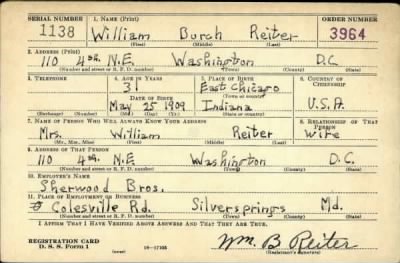 SERIAL NUMBER 1. NAME (Print) ORDER NUMBER
1138 William Burch Reiter 3964
(First) (Middle) (Last)
2. ADDRESS (Print)
110 4th. N.E. Washington D.C.
(Number and street or R. F. D. number) (Town) (County) (State)
3. TELEPHONE 4. AGE IN YEARS 5. PLACE OF BIRTH 6. COUNTRY OF CITIZENSHIP
31 East Chicago
DATE OF BIRTH (Town or county)
May 25 1909 Indiana U.S.A.
(Exchange) (Number) (Mo.) (Day) (Yr.) (State or country)
7. NAME OF PERSON WHO WILL ALWAYS KNOW YOUR ADDRESS 8. RELATIONSHIP OF THAT PERSON
Mrs. William Reiter Wife
(Mr., Mrs., Miss) (First) (Middle) (Last)
9. ADDRESS OF THAT PERSON
110 4th. N.E Washington D.C.
(Number and street or R. F. D. number) (Town) (County) (State)
10. EMPLOYER'S NAME
Sherwood Bros.
11. PLACE OF EMPLOYMENT OR BUSINESS
Colesville Rd. Silversprings Md.
(Number and street or R. F. D. number) (Town) (County) (State)
I AFFIRM THAT I HAVE VERIFIED ABOVE ANSWERS AND THAT THEY ARE TRUE.
REGISTRATION CARD
D. S. S. Form 1 (over) 16-17105 Wm. B Reiter
(Registrant's signature)